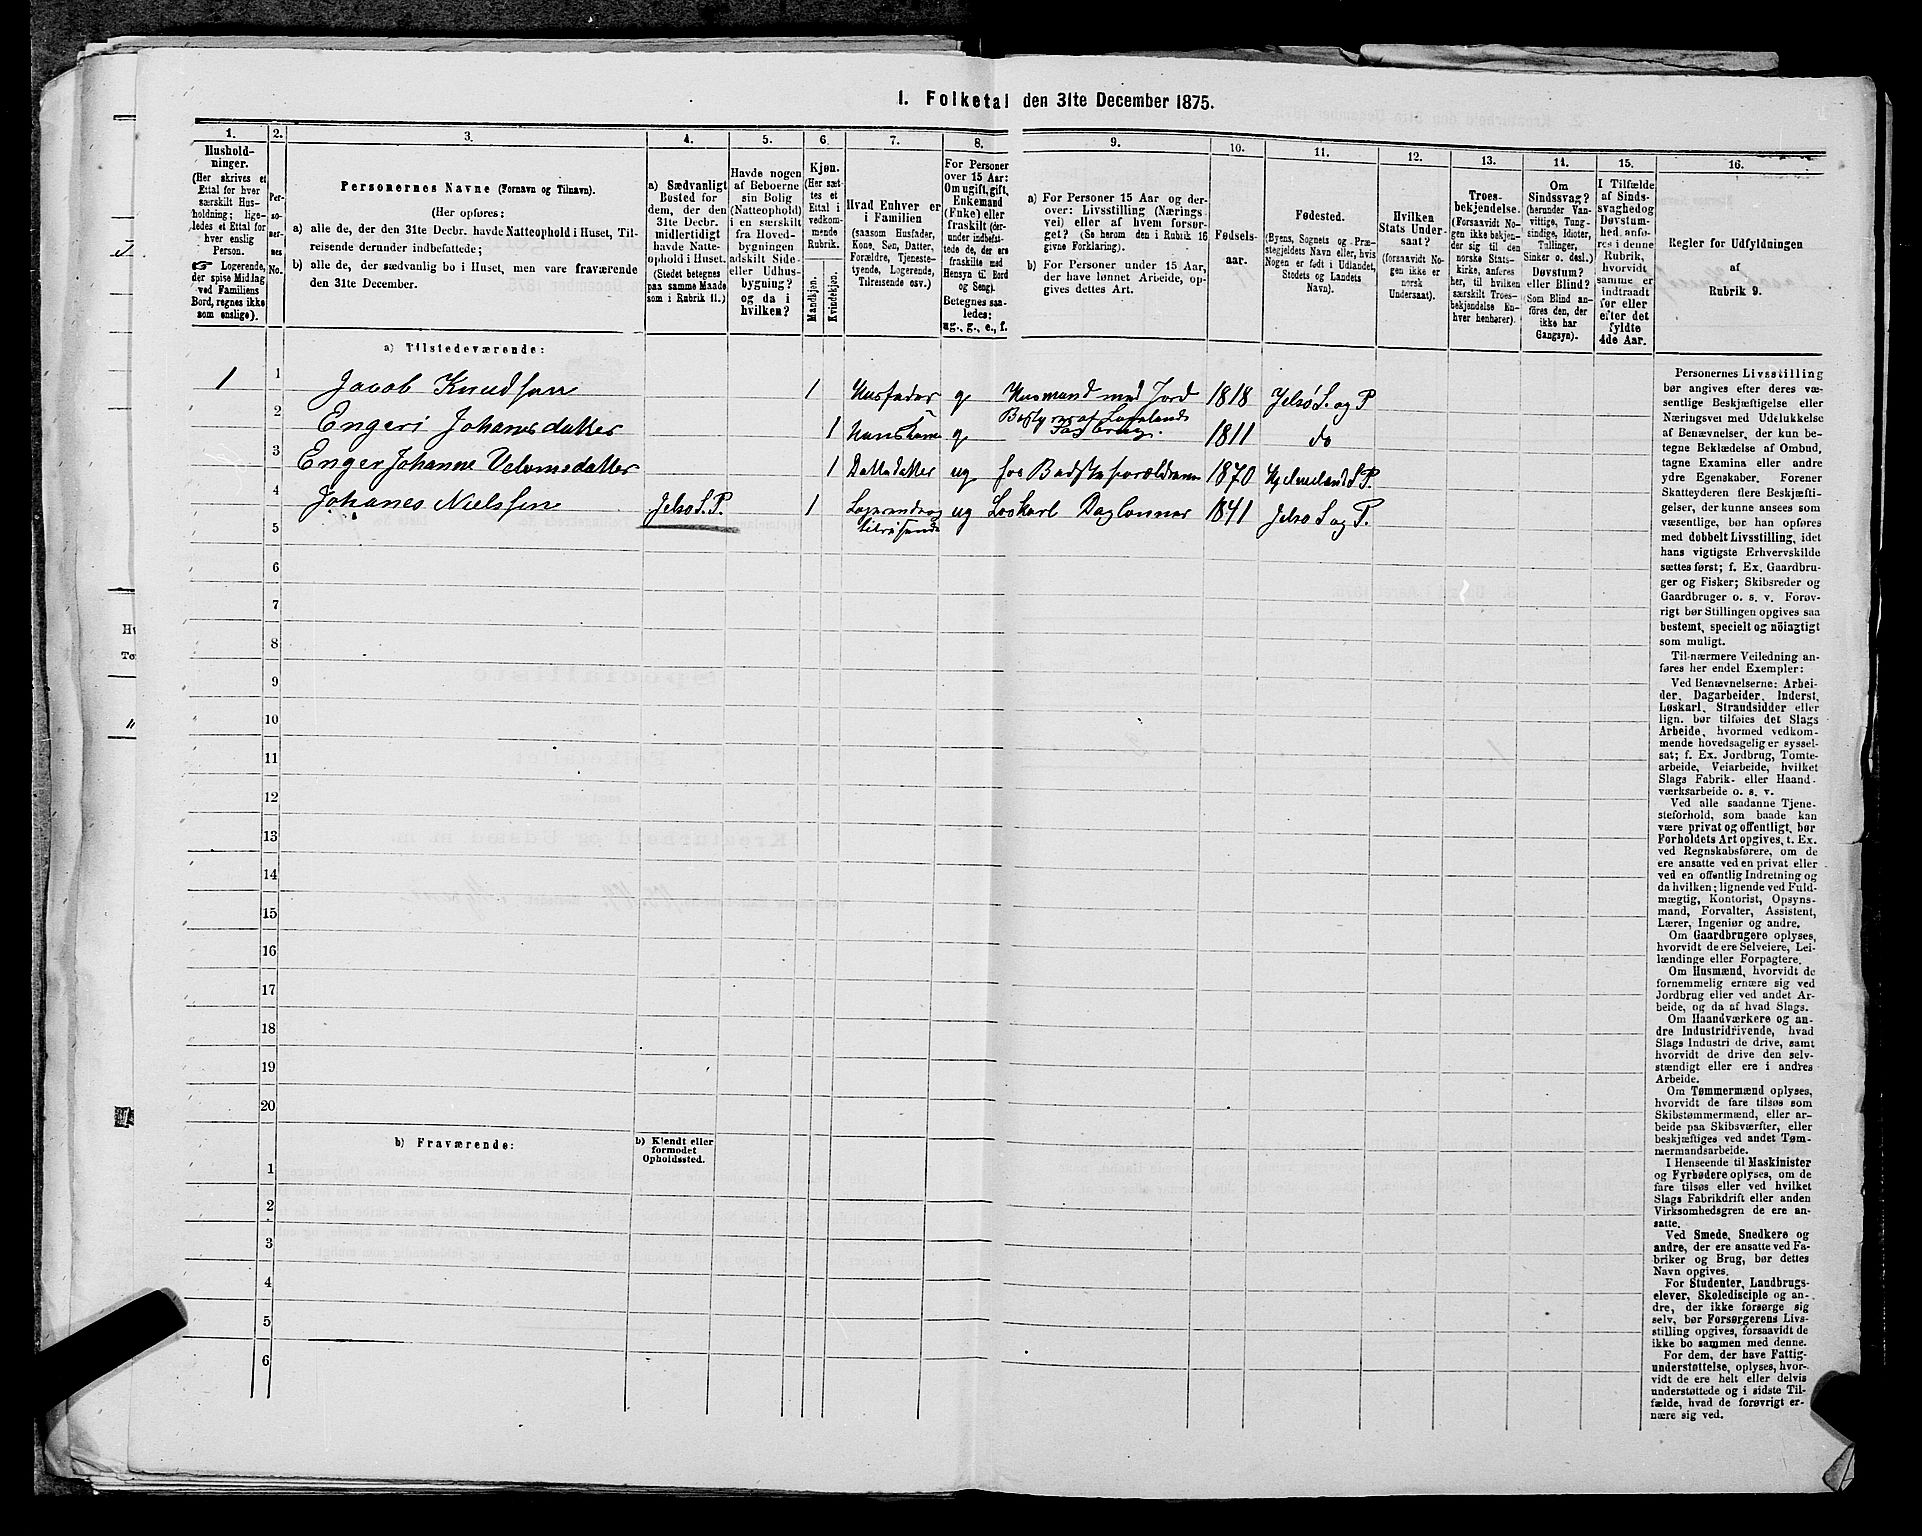 I. Folketal den 31te December 1875.
1.
Hushold-
ninger.
(Her skrives et
Ettal for hver
særskilt Hus-
holdning; lige-
ledes et Ettal for
hver enslig
Person.
☞ Logerende,
der spise Middag
ved Familiens
Bord, regnes ikke
som enslige).
2.
Per-
so-
ner-
nes
No.
3.
Personernes Navne (Fornavn og Tilnavn).
(Her opføres:
a) alle de, der den 31te Decbr. havde Natteophold i Huset, Til-
reisende derunder indbefattede;
b) alle de, der sædvanlig bo i Huset, men vare fraværende
den 31te December.
4.
a) Sædvanligt
Bosted for
dem, der den
31te Decbr.
midlertidigt
havde Natte-
ophold i Huset.
(Stedet betegnes
paa samme Maade
som i Rubrik 11.)
5.
Havde nogen
af Beboerne
sin Bolig
(Natteophold)
i en særskilt
fra Hoved-
bygningen
adskilt Side-
eller Udhus-
bygning?
og da i
hvilken?
6.
Kjøn.
(Her sæt-
tes et
Ettal i
vedkom-
mende
Rubrik.
Mandkjøn.
Kvindekjøn.
7.
Hvad Enhver er
i Familien
(saasom Husfader,
Kone, Søn, Datter,
Forældre, Tjeneste-
tyende, Logerende,
Tilreisende osv.)
8.
For Personer
over 15 Aar:
Om ugift, gift,
Enkemand
(Enke) eller
fraskilt (der-
under indbefat-
tede de, der ere
fraskilte med
Hensyn til Bord
og Seng).
Betegnes saa-
ledes:
ug., g., e., f.
9.
a) For Personer 15 Aar og der-
over: Livsstilling (Nærings-
vei) eller af hvem forsør-
get? (Se herom den i Rubrik 16
givne Forklaring).
b) For Personer under 15 Aar,
der have lønnet Arbeide, op-
gives dettes Art.
10.
Fødsels-
aar.
11.
Fødested.
(Byens, Sognets og Præ-
stegjeldets Navn eller, hvis
Nogen er født i Udlandet,
Stedets og Landets
Navn).
12.
Hvilken
Stats Under-
saat?
(forsaavidt No-
gen ikke er
norsk
Undersaat).
13.
Troes-
bekjendelse.
(Forsaavidt No-
gen ikke bekjen-
der sig til den
norske Stats-
kirke, anføres
her, til hvilken
særskilt Troes-
bekjendelse En-
hver henhører).
14.
Om
Sindssvag?
(herunder Van-
vittige, Tung-
sindige, Idioter,
Tullinger,
Sinker o. desl.)
Døvstum?
eller Blind?
(Som Blind an-
føres den, der
ikke har
Gangsyn).
15.
I Tilfælde
af Sinds-
svaghed og
Døvstum-
hed, anfø-
res i denne
Rubrik,
hvorvidt
samme er
indtraadt
før eller
efter det
fyldte
4de Aar.
16.
Regler for Udfyldningen
af
Rubrik 9.
a) Tilstedeværende:
1 1 Jacob Knudsen 1 Husfader g Husmand med Jord 1818 Jelsø S. og P
2 Engeri Johannsdatter 1 g 1811 do
3 Enger Johanne 1 ug 1870 S P.
4 Johanes Nielssen Jelsø S. P. 1 Logerende og ug Løskarl 1841 Jelsø S og P.
tilreisende
5
6
7
8
9
10
11
12
13
14
15
16
17
18
19
20
b) Fraværende:
b) Kjendt eller
formodet
Opholdssted.
1
2
3
4
5
6
Personernes Livsstilling
bør angives efter deres væ-
sentlige Beskjæftigelse eller
Næringsvei med Udelukkelse
af Benævnelser, der kun be-
tegne Beklædelse af Ombud,
tagne Examina eller andre
ydre Egenskaber. Forener
Skatteyderen flere Beskjæfti-
gelser, der kunne ansees som
væsentlige, bør han opføres
med dobbelt Livsstilling, idet
hans vigtigste Erhvervskilde
sættes først; f. Ex. Gaardbru-
ger og Fisker; Skibsreder og
Gaardbruger o. s. v. Forøv-
rigt bør Stillingen opgives saa
bestemt, specielt og nöiagtigt
som muligt.
Til nærmere Veiledning an-
føres her endel Exempler:
Ved Benævnelserne: Arbei-
der, Dagarbeider, Inderst,
Løskarl, Strandsidder eller
lign. bør tilføies det Slags
Arbeide, hvormed vedkom-
mende hovedsagelig er syssel-
sat; f. Ex. Jordbrug, Tomte-
arbeide, Veiarbeide, hvilket
Slags Fabrik- eller Haand-
værksarbeide o. s. v.
Ved alle saadanne Tjene-
steforhold, som baade kan
være privat og offentligt, bør
Forholdets Art opgives, t. Ex.
ved Regnskabsførere, om de
ere ansatte ved en privat eller
ved en offentlig Indretning og
da hvilken; lignende ved Fuld-
mægtig, Kontorist, Opsyns-
mand, Forvalter, Assistent,
Lærer, Ingeniør og andre.
Om Gaardbrugere oplyses,
hvorvidt de ere Selveiere, Lei-
lændinge eller Forpagtere.
Om Husmænd, hvorvidt de
fornemmelig ernære sig ved
Jordbrug eller ved andet Ar-
beide, og da af hvad Slags.
Om Haandværkere og an-
dre Industridrivende, hvad
Slags Industri de drive, samt
hvorvidt de drive den selv-
stændigt eller ere i andres
Arbeide.
Om Tømmermænd oplyses,
hvorvidt de fare tilsøs som
Skibstømmermænd, eller ar-
beide paa Skibsværfter, eller
beskjæftiges ved andet Tøm-
mermandsarbeide.
I Henseende til Maskinister
og Fyrbødere oplyses, om de
fare tilsøs eller ved hvilket
Slags Fabrikdrift eller anden
Virksomhedsgren de ere an-
satte.
Ved Smede, Snedkere og
andre, der ere ansatte ved Fa-
briker og Brug, bør dettes
Navn opgives.
For Studenter, Landbrugs-
elever, Skoledisciple og an-
dre, der ikke forsørge sig
selv, bør Forsørgerens Livs-
stilling opgives, forsaavidt de
ikke bo sammen med denne.
For dem, der have Fattig-
understøttelse, oplyses, hvor-
vidt de ere helt eller delvis
understøttede og i sidste Til-
fælde, hvad de forøvrigt er-
nære sig ved.